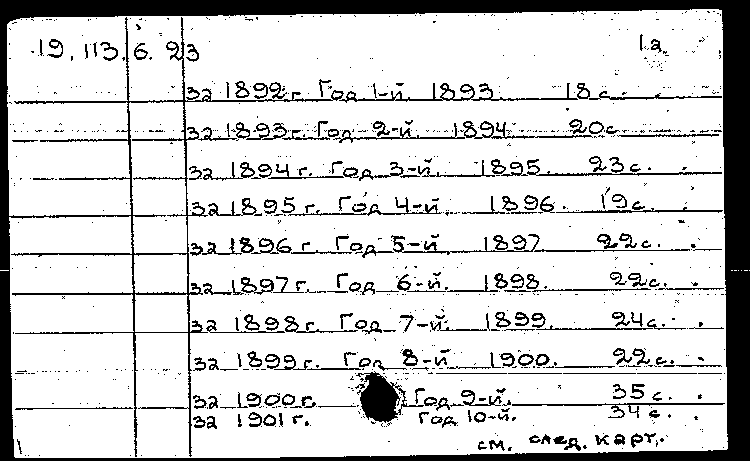 19.113.6.23 1а
за 1892г. Год 1-й. 1893. 18с.
за 1893г. Год 2-й. 1894. 20с.
за 1894г. Год 3-й. 1895. 23с.
за 1895г. Год 4-й. 1896. 19с.
за 1896г. Год 5-й. 1897. 22с.
за 1897г. Год 6-й. 1898. 22с.
за 1898г. Год 7-й. 1899. 24с.
за 1899г. Год 8-й. 1900. 22с.
за 1900г. Год 9-й. 35с.
за 1901г. Год 10-й. 34с.
см. след. карт.